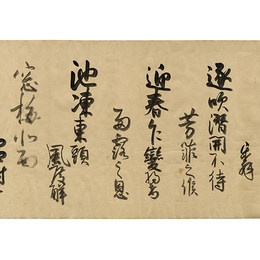 立春
逐吹潜開不待
芳菲之候
迎春乍變将希
雨露之恩
池凍東頭
風度解
窓梅北面